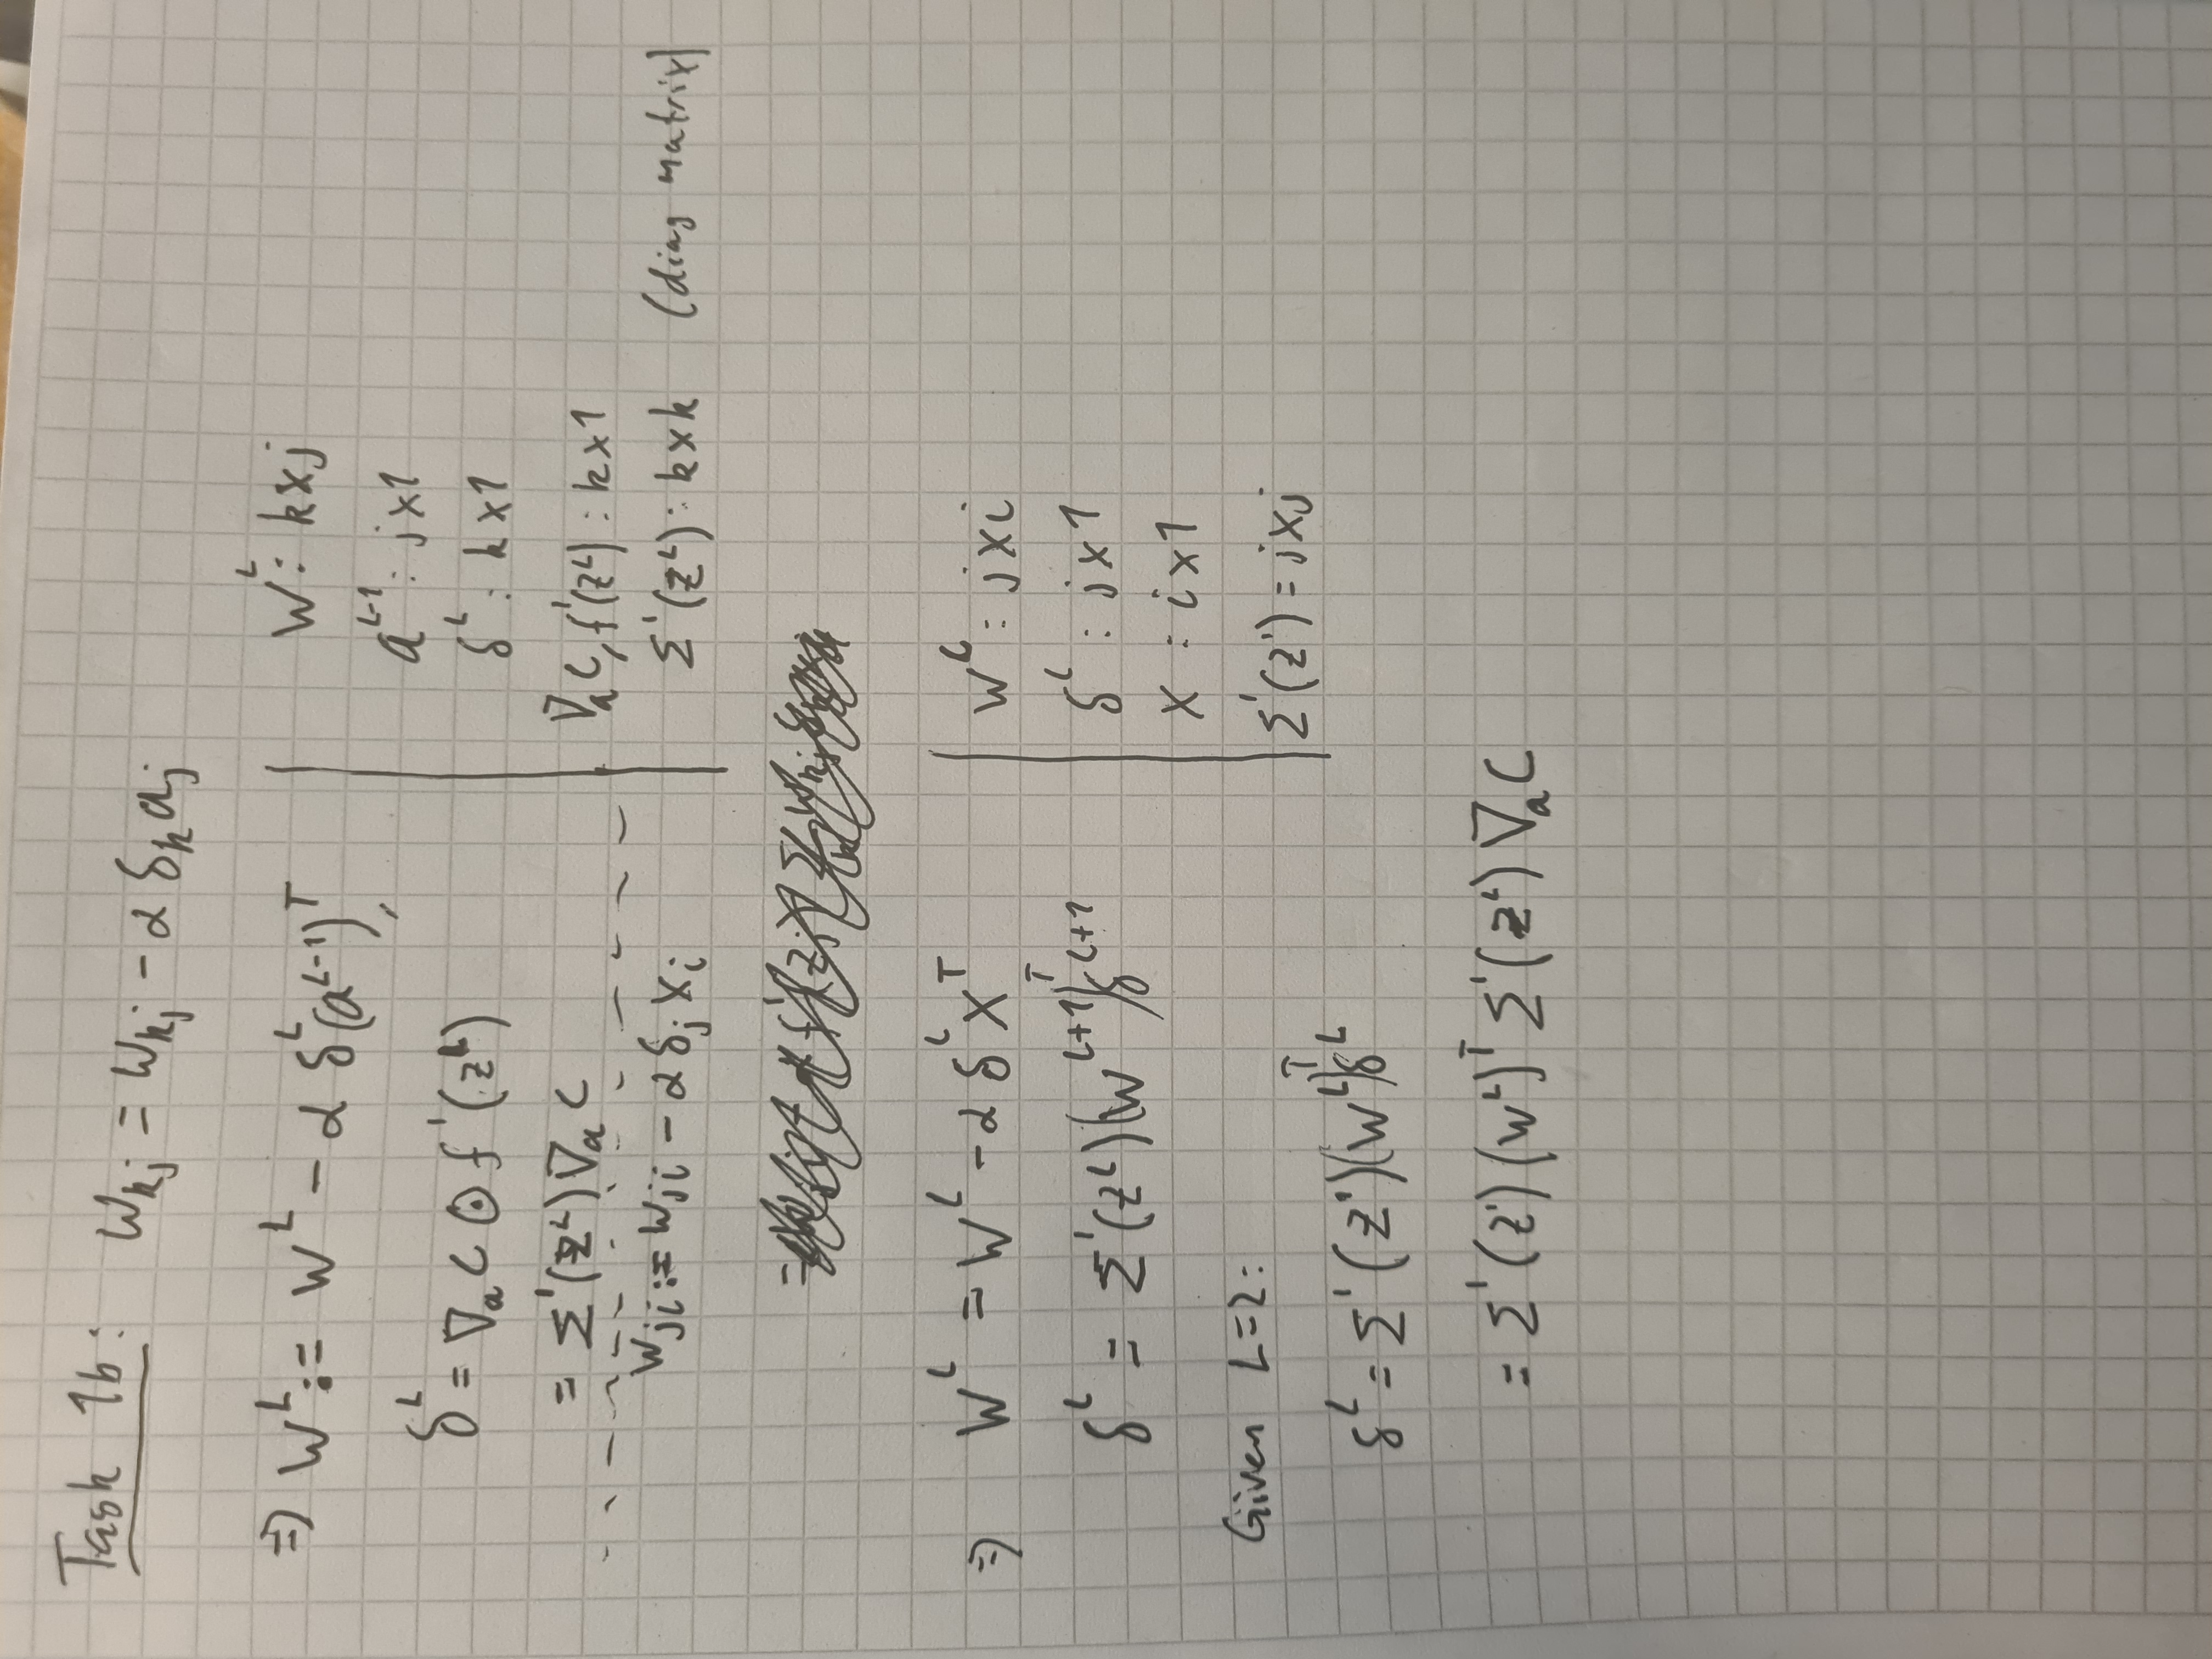 Task 1b: w_kj = w_kj - α δ_k a_j
⇒ W^L := W^L - α δ^L (a^{L-1})^T,
δ^L = ∇_a C ⊙ f'(z^L)
= Σ'(z^L) ∇_a C
W^L : k×j
a^{L-1} : j×1
δ^L : k×1
∇_a C, f'(z^L) : k×1
Σ'(z^L) : k×k (diag matrix)
w_ji := w_ji - α δ_j x_i
⇒ W^L = W^L - α δ^L X^T
δ^L = Σ'(z^L)(W^{L+1})^T δ^{L+1}
W^L : j×i
δ^L : j×1
X : i×1
Σ'(z') = j×j
Given L=2:
δ^L = Σ'(z')(W^L)^T δ^L
= Σ'(z')(W^L)^T Σ'(z^L) ∇_a C